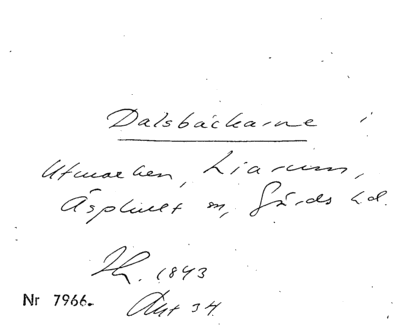 Dalsbäckarne i
Utmarken, Liarum,
Äsphult sn, Gärds hd.
Th. 1843
Nr 7966.
Akt 34